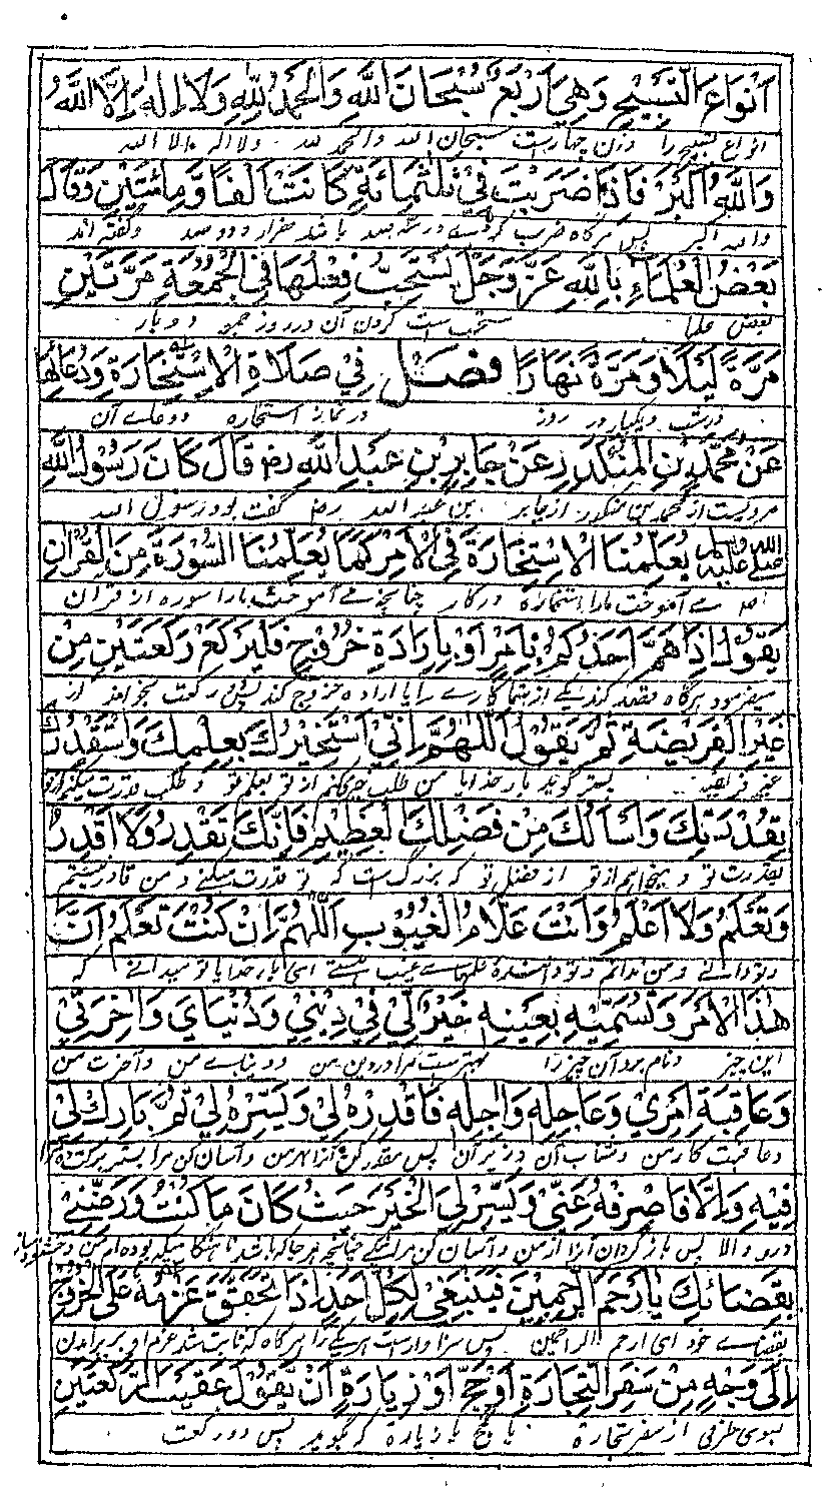 اَنْوَاعَ التَّسْبِيْحِ وَهِيَ اَرْبَعٌ سُبْحَانَ اللّٰهِ وَالْحَمْدُ لِلّٰهِ وَلَا اِلٰهَ اِلَّا اللّٰهُ
انواع تسبیح را وآن چهارست سبحان الله والحمد لله ولا اله الا الله
وَاللّٰهُ اَكْبَرُ فَاِذَا ضَرَبْتَ فِيْ ثَلٰثِمِائَةٍ كَانَتْ اَلْفًا وَّمِائَتَيْنِ وَقَالَ
والله اکبر پس هرگاه ضرب کردی در سه صد باشد هزار و دو صد وگفته اند
بَعْضُ الْعُلَمَاءِ بِاللّٰهِ عَزَّ وَجَلَّ يُسْتَحَبُّ فِعْلُهَا فِي الْجُمُعَةِ مَرَّتَيْنِ
بعض علما مستحب ست کردن آن در روز جمعه دو بار
مَرَّةً لَيْلًا وَمَرَّةً نَهَارًا فصل فِيْ صَلَاةِ الْاِسْتِخَارَةِ وَدُعَائِهَا
در شب ویکبار در روز در نماز استخاره ودعای آن
عَنْ مُحَمَّدِ بْنِ الْمُنْكَدِرِ عَنْ جَابِرِ بْنِ عَبْدِ اللّٰهِ رض قَالَ كَانَ رَسُوْلُ اللّٰهِ
مرویست از محمد بن منکدر از جابر بن عبد الله رض گفت بود رسول الله
صلى الله عليه وسلم يُعَلِّمُنَا الْاِسْتِخَارَةَ فِي الْاَمْرِ كَمَا يُعَلِّمُنَا السُّوْرَةَ مِنَ الْقُرْاٰنِ
می آموخت مارا استخاره در کار چنانچه می آموخت مارا سوره از قران
يَقُوْلُ اِذَا هَمَّ اَحَدُكُمْ بِاَمْرٍ اَوْ بِاِرَادَةِ خُرُوْجٍ فَلْيَرْكَعْ رَكْعَتَيْنِ مِنْ
میفرمود هرگاه قصد کند یکی از شما کاری را یا اراده خروج کند پس دو رکعت بخواند از
غَيْرِ الْفَرِيْضَةِ ثُمَّ يَقُوْلُ اَللّٰهُمَّ اِنِّيْ اَسْتَخِيْرُكَ بِعِلْمِكَ وَاَسْتَقْدِرُكَ
غیر فریضه پستر گوید بار خدایا من طلب خیر میکنم از تو بعلم تو و طلب قدرت میکنم از تو
بِقُدْرَتِكَ وَاَسْاَلُكَ مِنْ فَضْلِكَ الْعَظِيْمِ فَاِنَّكَ تَقْدِرُ وَلَا اَقْدِرُ
بقدرت تو و میخواهم از تو از فضل تو که بزرگ ست که تو قدرت میکنی و من قادر نیستم
وَتَعْلَمُ وَلَا اَعْلَمُ وَاَنْتَ عَلَّامُ الْغُيُوْبِ اَللّٰهُمَّ اِنْ كُنْتَ تَعْلَمُ اَنَّ
وتو دانی و من ندانم و تو دانندهٔ علمهای غیب هستی ای بار خدایا تو میدانی که
هٰذَا الْاَمْرَ وَتُسَمِّيْهِ بِعَيْنِهِ خَيْرٌ لِّيْ فِيْ دِيْنِيْ وَدُنْيَايَ وَاٰخِرَتِيْ
این چیز ونام برد آن چیز را بهتر ست مرا در دین من ودنیای من وآخرت من
وَعَاقِبَةِ اَمْرِيْ وَعَاجِلِهِ وَاٰجِلِهِ فَاقْدِرْهُ لِيْ وَيَسِّرْهُ لِيْ ثُمَّ بَارِكْ لِيْ
وعاقبت کار من وشتاب آن ودیر آن پس مقدر کن آنرا بهر من وآسان کن مرا پستر برکت ده مرا
فِيْهِ وَاِلَّا فَاصْرِفْهُ عَنِّيْ وَيَسِّرْ لِيَ الْخَيْرَ حَيْثُ كَانَ مَا كُنْتُ وَرَضِّنِيْ
درو والا پس باز گردان آنرا از من وآسان کن مرا نیکی چنانچه هر جا که باشد
بِقَضَائِكَ يَا اَرْحَمَ الرَّاحِمِيْنَ فَيَنْبَغِيْ لِكُلِّ اَحَدٍ اِذَا تَحَقَّقَ عَزْمُهُ عَلَى الْخُرُوْجِ
بقضای خود ای ارحم الراحمین پس سزاوارست هر یکی را هرگاه که ثابت شد عزم او بر برآمدن
اِلٰى وَجْهٍ مِنْ سَفَرِ التِّجَارَةِ اَوْ حَجٍّ اَوْ زِيَارَةٍ اَنْ يَّقُوْلَ عَقِيْبَ الرَّكْعَتَيْنِ
بسوی طرفی از سفر تجارة یا حج یا زیارة که بگوید پس دو رکعت